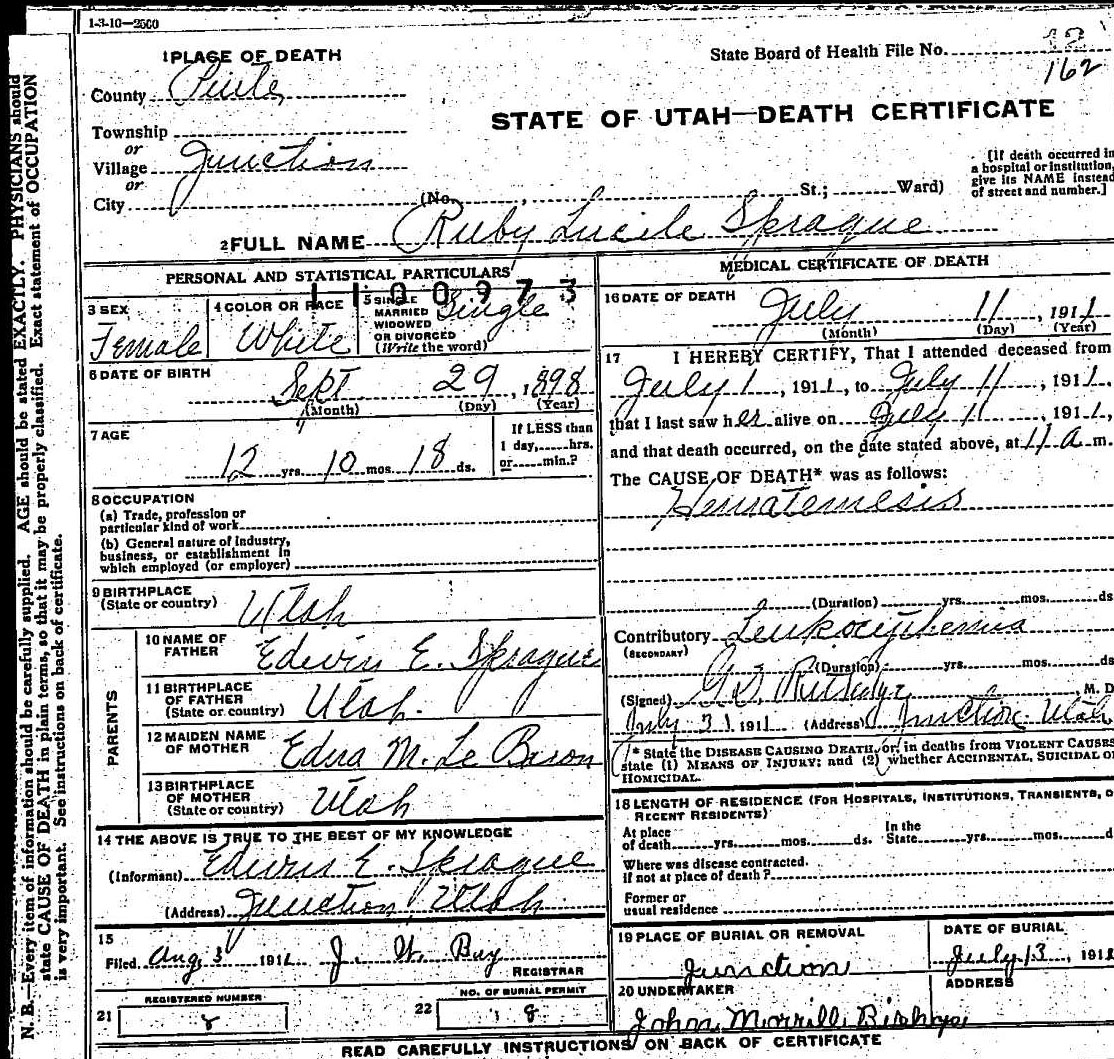 1-3-10—2500
1 PLACE OF DEATH
State Board of Health File No. 32
162
County Piute
STATE OF UTAH—DEATH CERTIFICATE
Township
or
Village Junction
or
City (No. , St.; Ward)
[If death occurred in
a hospital or institution,
give its NAME instead
of street and number.]
2 FULL NAME Ruby Lucile Sprague
PERSONAL AND STATISTICAL PARTICULARS
1100973
3 SEX
Female
4 COLOR OR RACE
White
5 SINGLE
MARRIED
WIDOWED
OR DIVORCED
(Write the word)
Single
6 DATE OF BIRTH
Sept 29, 1898
(Month) (Day) (Year)
7 AGE
12 yrs. 10 mos. 18 ds.
If LESS than
1 day, hrs.
or min.?
8 OCCUPATION
(a) Trade, profession or
particular kind of work
(b) General nature of industry,
business, or establishment in
which employed (or employer)
9 BIRTHPLACE
(State or country) Utah
PARENTS
10 NAME OF
FATHER Edwin E. Sprague
11 BIRTHPLACE
OF FATHER
(State or country) Utah.
12 MAIDEN NAME
OF MOTHER Edna M. Le Baron
13 BIRTHPLACE
OF MOTHER
(State or country) Utah
14 THE ABOVE IS TRUE TO THE BEST OF MY KNOWLEDGE
(Informant) Edwin E. Sprague
(Address) Junction, Utah
15
Filed Aug 3 1911 J. W. Bay
REGISTRAR
REGISTERED NUMBER
21 8
NO. OF BURIAL PERMIT
22 8
MEDICAL CERTIFICATE OF DEATH
16 DATE OF DEATH
July 11, 1911
(Month) (Day) (Year)
17 I HEREBY CERTIFY, That I attended deceased from
July 1, 1911, to July 11, 1911,
that I last saw her alive on July 11, 1911,
and that death occurred, on the date stated above, at 11 a m.
The CAUSE OF DEATH* was as follows:
Hematemesis
(Duration) yrs. mos. ds
Contributory Leukocythemia
(SECONDARY)
(Duration) yrs. mos. ds
(Signed) M. D
July 31 1911 (Address) Junction Utah
* State the DISEASE CAUSING DEATH, or, in deaths from VIOLENT CAUSES
state (1) MEANS OF INJURY; and (2) whether ACCIDENTAL, SUICIDAL or
HOMICIDAL.
18 LENGTH OF RESIDENCE (FOR HOSPITALS, INSTITUTIONS, TRANSIENTS, O
RECENT RESIDENTS)
At place
of death yrs. mos. ds.
In the
State yrs. mos. d
Where was disease contracted.
if not at place of death?
Former or
usual residence
19 PLACE OF BURIAL OR REMOVAL
Junction
DATE OF BURIAL
July 13, 1911
20 UNDERTAKER
John Morrill Bishop
ADDRESS
READ CAREFULLY INSTRUCTIONS ON BACK OF CERTIFICATE
N. B.—Every item of information should be carefully supplied. AGE should be stated EXACTLY. PHYSICIANS should
state CAUSE OF DEATH in plain terms, so that it may be properly classified. Exact statement of OCCUPATION
is very important. See instructions on back of certificate.